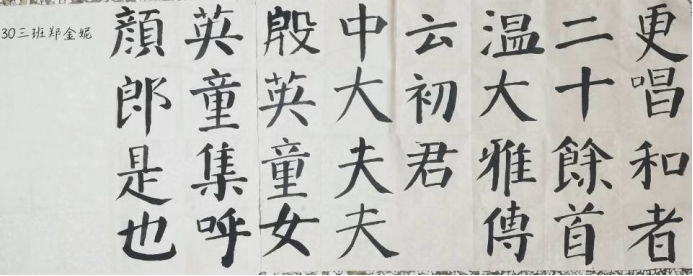 更唱和者
二十餘首
温大雅傳
云初君
中大夫夫
殷英童女
英童集呼
顔郎是也
30三班郑金妮